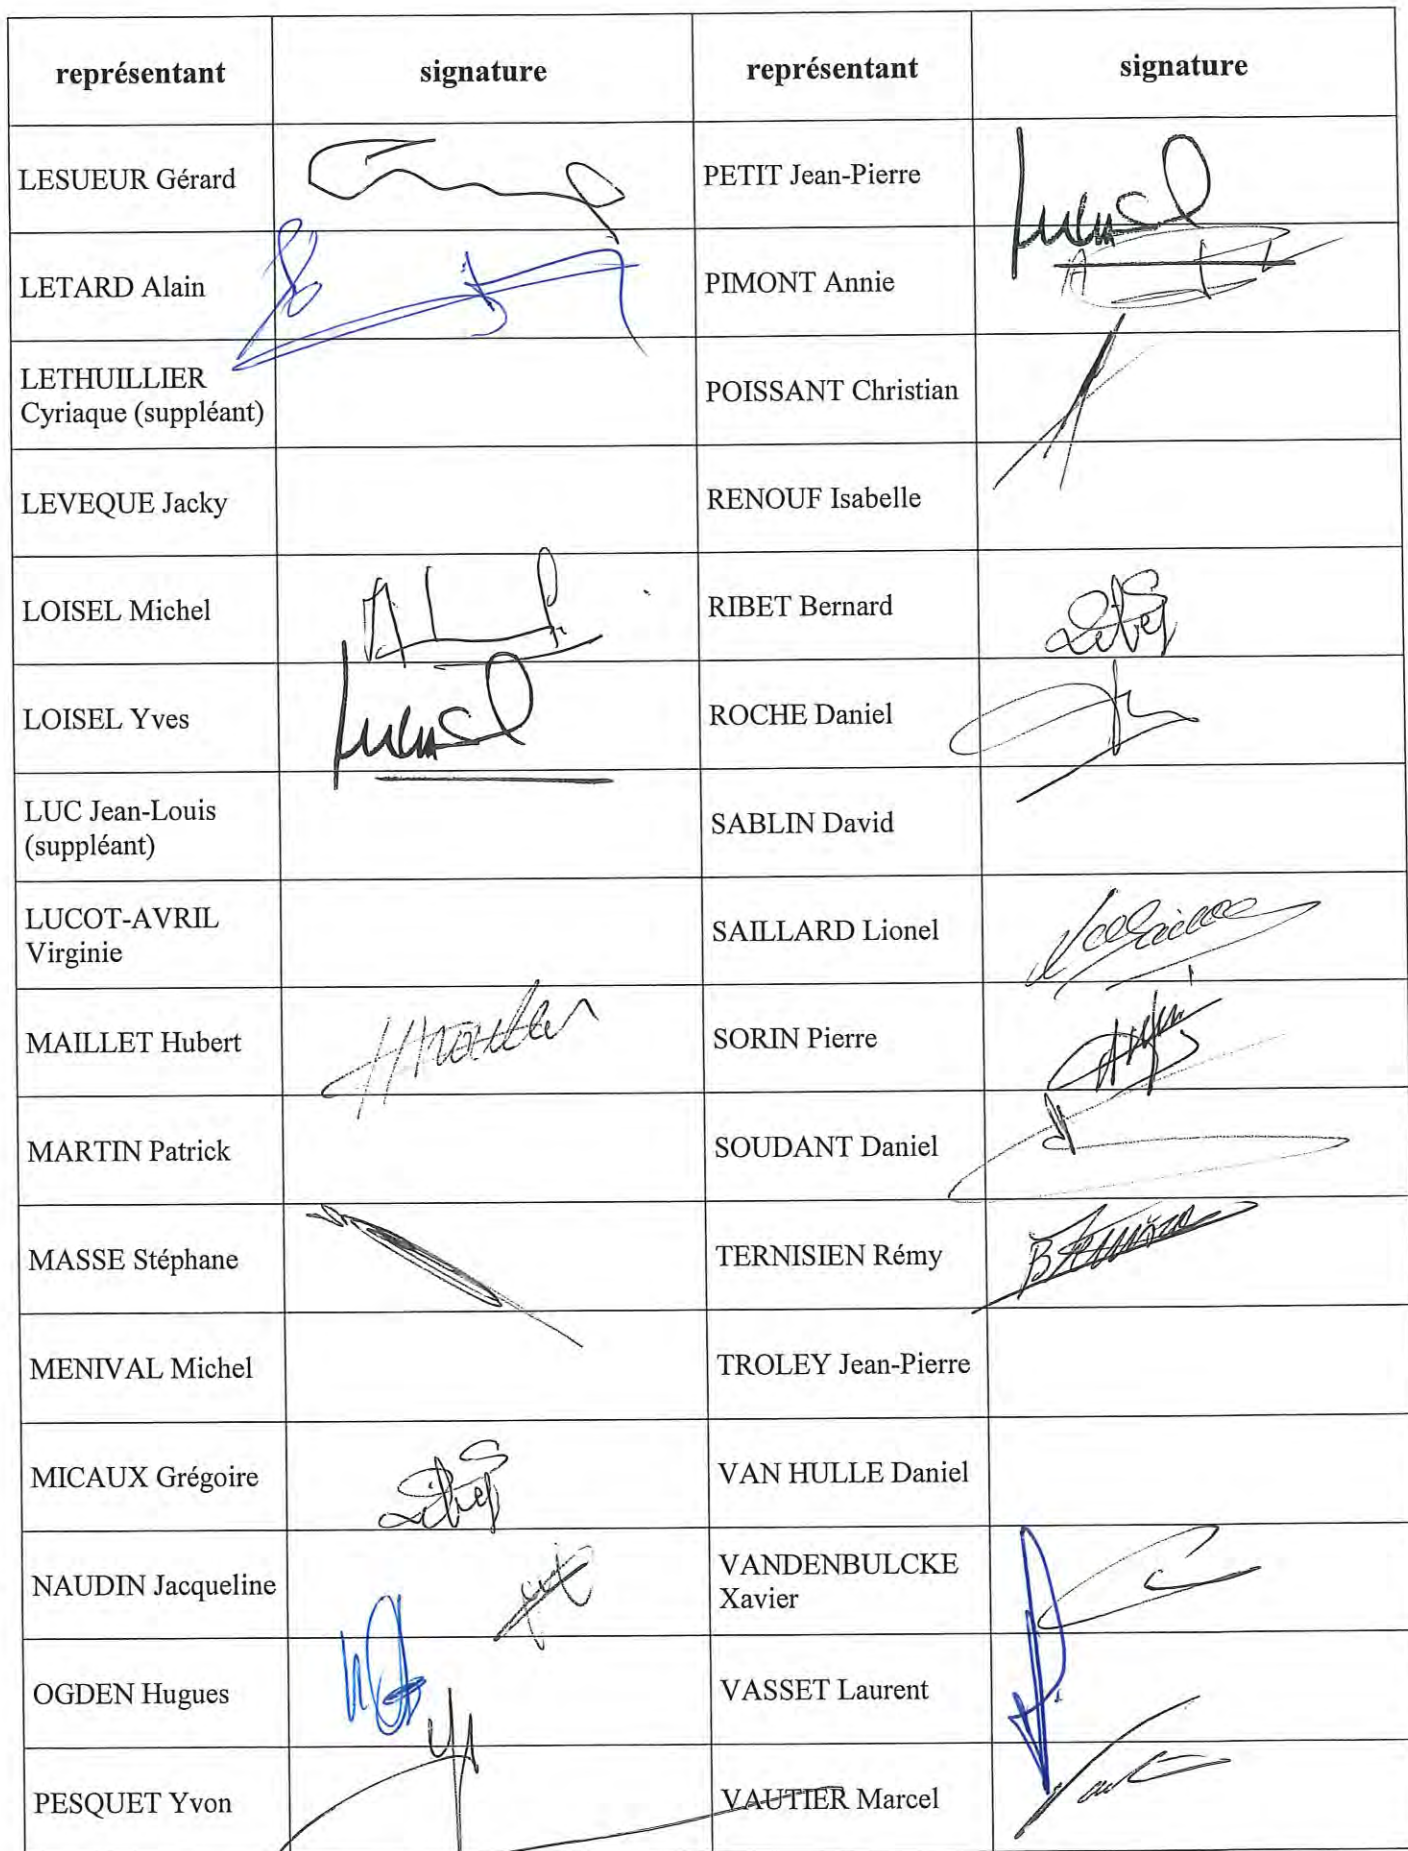 représentant signature représentant signature
LESUEUR Gérard PETIT Jean-Pierre
LETARD Alain PIMONT Annie
LETHUILLIER
Cyriaque (suppléant) POISSANT Christian
LEVEQUE Jacky RENOUF Isabelle
LOISEL Michel RIBET Bernard
LOISEL Yves ROCHE Daniel
LUC Jean-Louis
(suppléant) SABLIN David
LUCOT-AVRIL
Virginie SAILLARD Lionel
MAILLET Hubert SORIN Pierre
MARTIN Patrick SOUDANT Daniel
MASSE Stéphane TERNISIEN Rémy
MENIVAL Michel TROLEY Jean-Pierre
MICAUX Grégoire VAN HULLE Daniel
NAUDIN Jacqueline VANDENBULCKE
Xavier
OGDEN Hugues VASSET Laurent
PESQUET Yvon VAUTIER Marcel